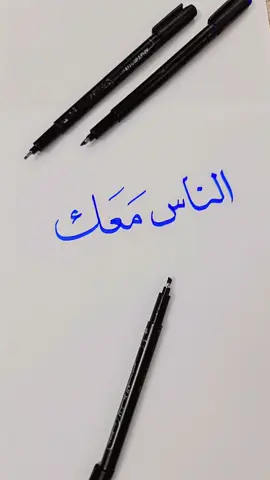 الناس مَعَك